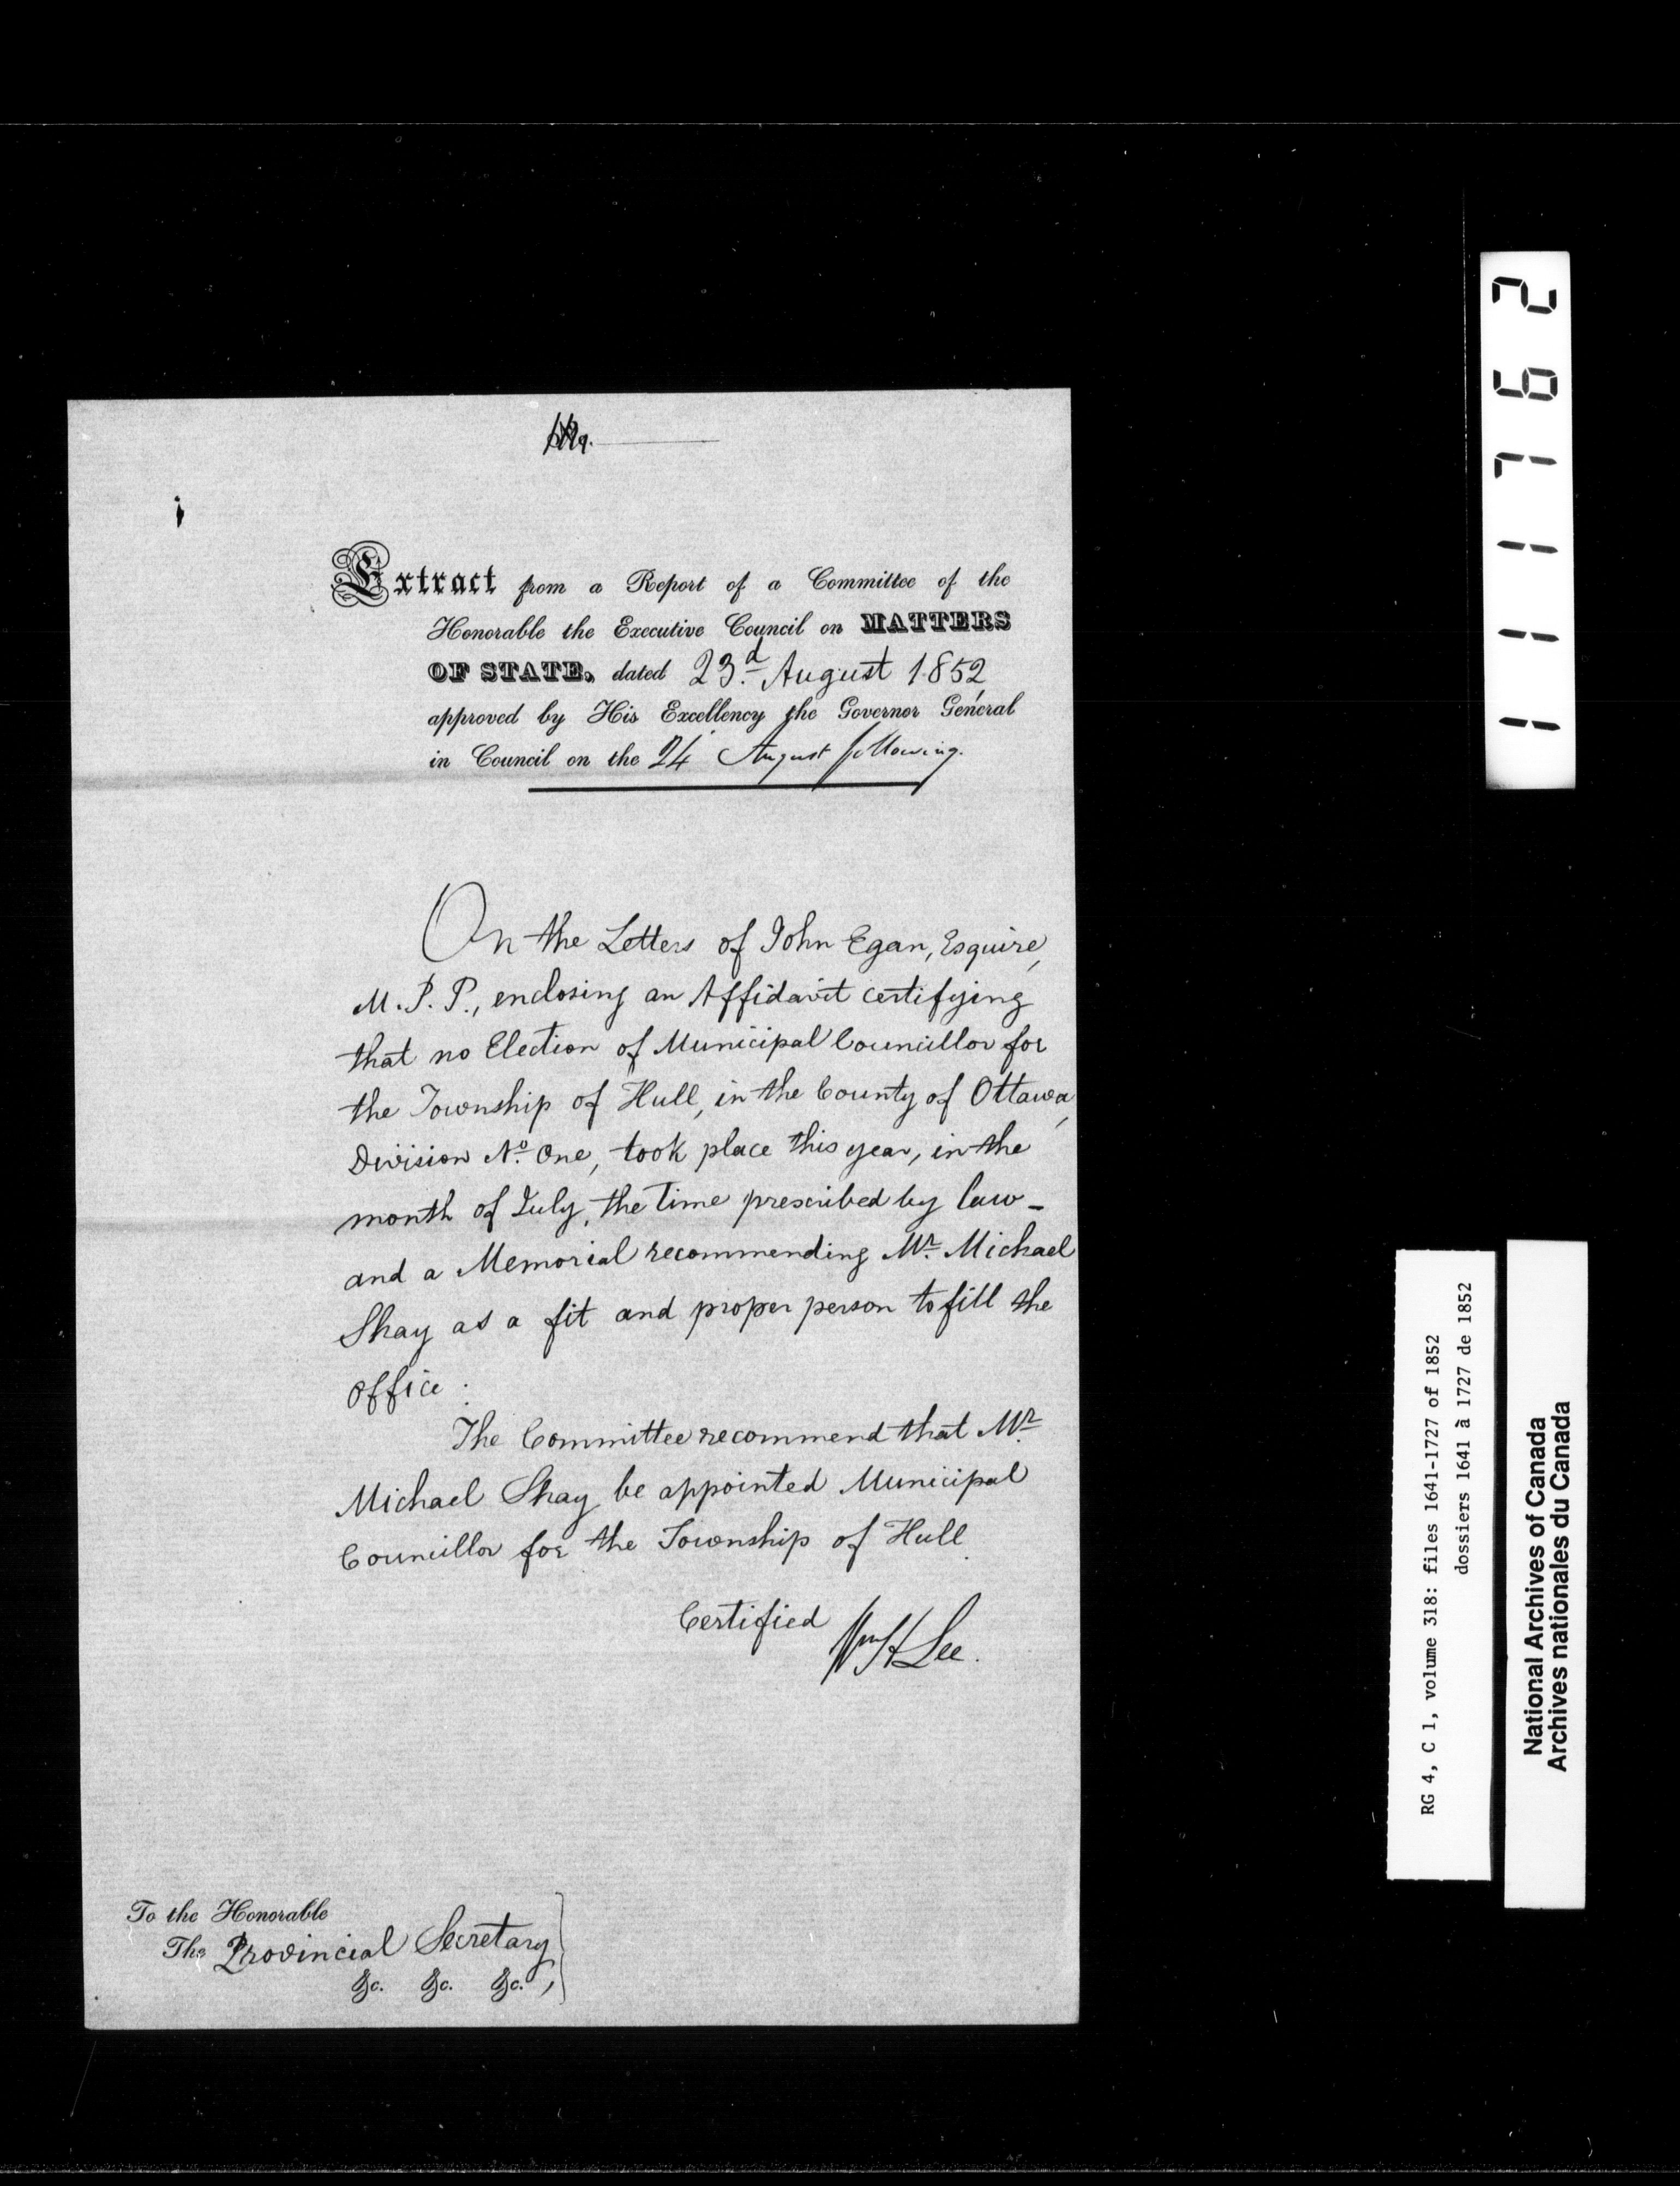 Extract from a Report of a Committee of the
Honorable the Executive Council on MATTERS
OF STATE, dated 23.d August 1852
approved by His Excellency the Governor General
in Council on the 24 August following.
On the Letters of John Egan, Esquire,
M.P.P., enclosing an Affidavit certifying
that no Election of Municipal Councillor for
the Township of Hull, in the County of Ottawa,
Division No. One, took place this year, in the
month of July, the time prescribed by law -
and a Memorial recommending Mr. Michael
Shay as a fit and proper person to fill the
office.
The Committee recommend that Mr.
Michael Shay be appointed Municipal
Councillor for the Township of Hull
Certified
Wm H Lee.
To the Honorable
The Provincial Secretary
&c. &c. &c.,
111762
RG 4, C 1, volume 318: files 1641-1727 of 1852
dossiers 1641 à 1727 de 1852
National Archives of Canada
Archives nationales du Canada